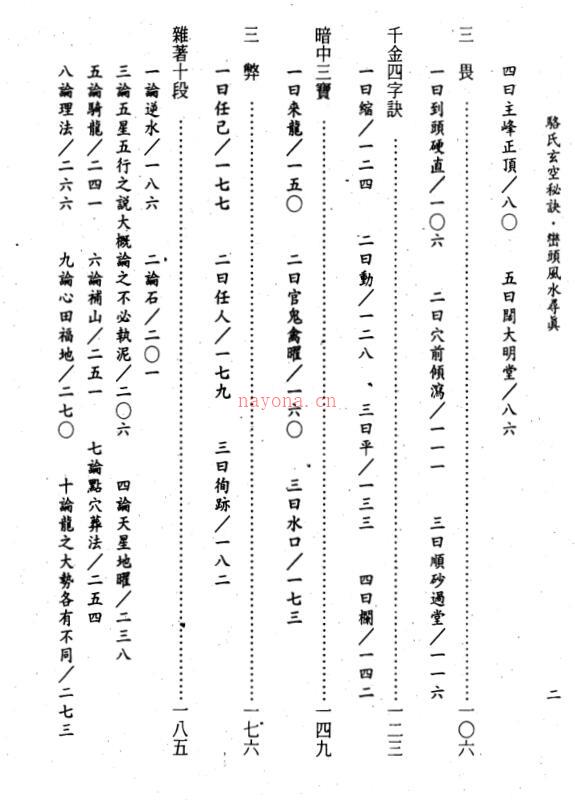 駱氏玄空秘訣·巒頭風水尋眞
二
四曰主峰正頂／八〇　五曰闊大明堂／八六
三　畏……一〇六
一曰到頭硬直／一〇六　二曰穴前傾瀉／一一一　三曰順砂過堂／一一六
千金四字訣……一二三
一曰縮／一二四　二曰動／一二八　三曰平／一三三　四曰欄／一四二
暗中三寶……一四九
一曰來龍／一五〇　二曰官鬼禽曜／一六〇　三曰水口／一七三
三　弊……一七六
一曰任己／一七七　二曰任人／一七九　三曰徇跡／一八二
雜著十段……一八五
一論逆水／一八六　二論石／二〇一
三論五星五行之説大概論之不必執泥／二〇六　四論天星地曜／二三八
五論騎龍／二四一　六論補山／二五一　七論點穴葬法／二五四
八論理法／二六六　九論心田福地／二七〇　十論龍之大勢各有不同／二七三
nayona.cn